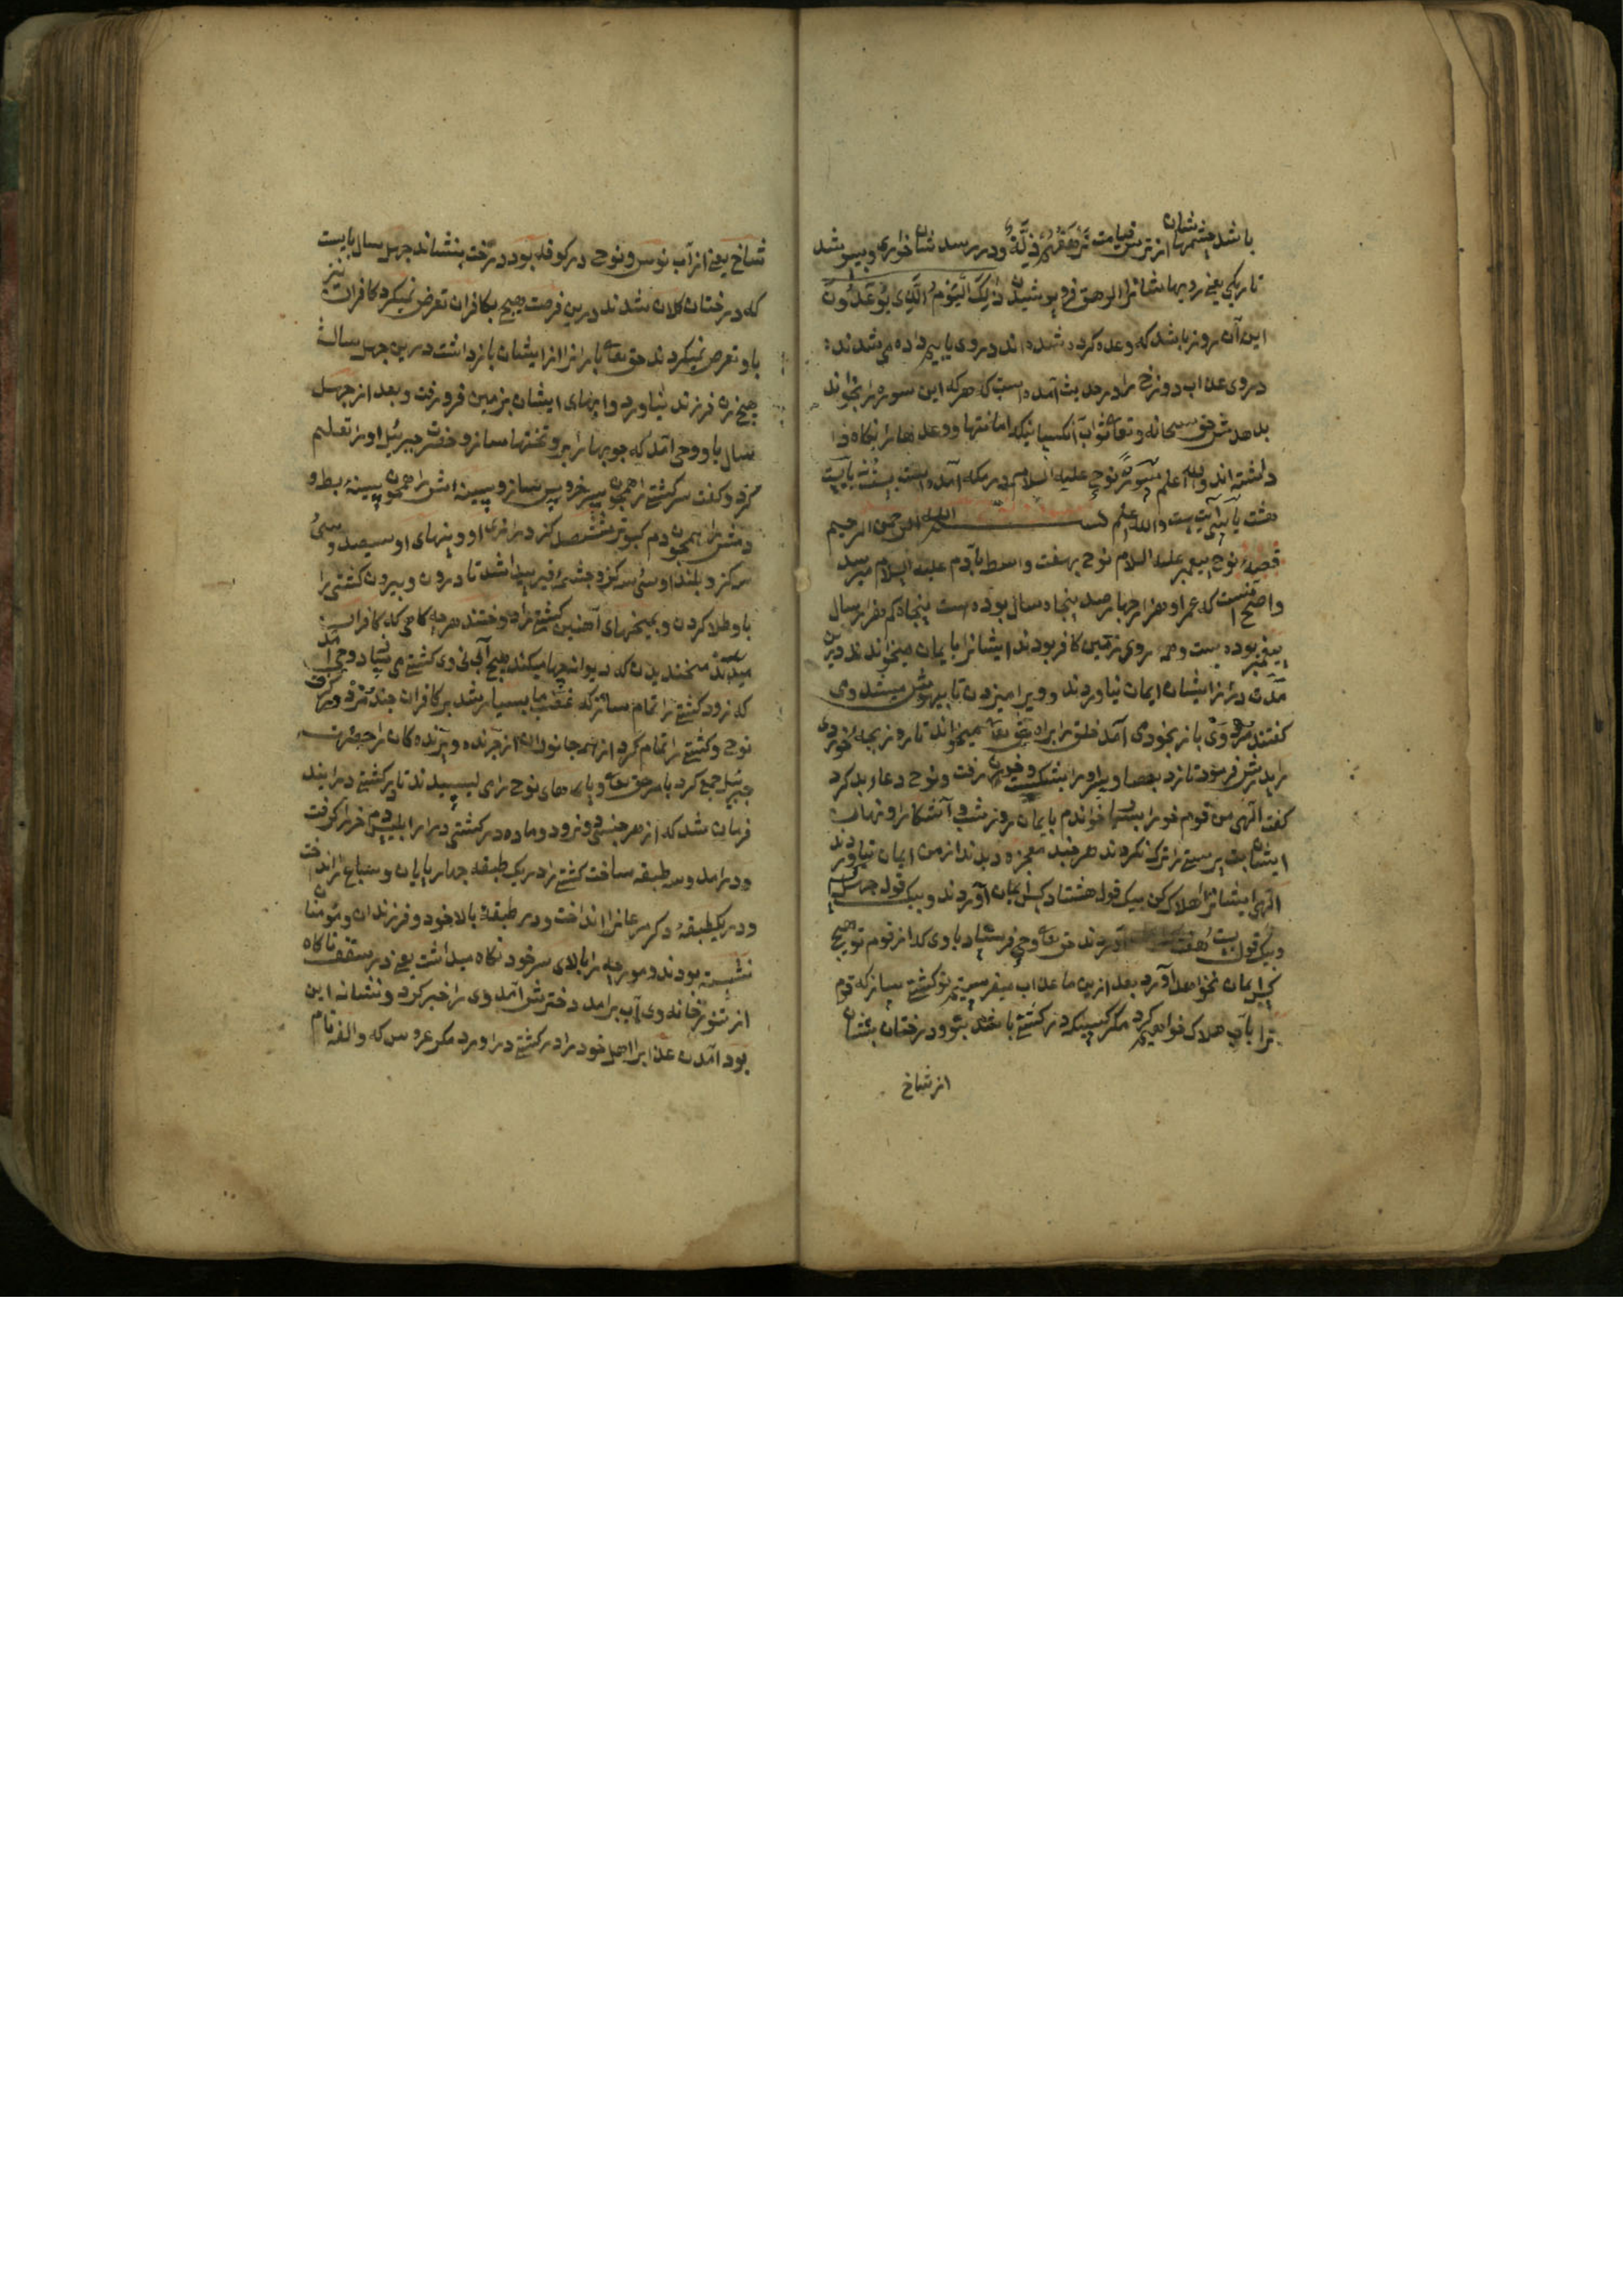 باشد چشمهاشان از ترس قیامت تَرْهَقُهُمْ ذِلَّةٌ و در رسد شان خواری و بپوشد
تاریکی یعنی رویهاشانرا فرو پوشیدن ذٰلِكَ الْيَوْمُ الَّذِي يُوعَدُونَ
این آن روز باشد که وعده کرده شده اند در وی یا بیم داده می شدند
در وی عذاب دوزخ را در حدیث آمده است که هر که این سوره را بخواند
بدهدش حق سبحانه و تعا ثواب آنکسانیکه امانتها و وعدهارا نکاه
داشته اند والله اعلم سورة نوح علیه السلام در مکه آمده است بیست آیت
هشت یا سی آیت است والله اعلم بسم الله الرحمن الرحیم
قصهٔ نوح پیغمبر علیه السلام نوح بهفت واسط بآدم علیه السلام میرسد
و اصح آنست که عمر او هزار چهارصد پنجاه سال بوده است پنجاه کم هزار سال
پیغمبر بوده است و همه روی زمین کافر بودند ایشانرا بایمان میخواندند درین
مدت دراز ایشان ایمان نیاوردند و ویرا میزدن تا بیهوش میشد وی
کفتند مرد وی باز بخود می آمد خلق را براه حق تعا میخواند تا روز بچهٔ خوردی
را پدرش فرمود تا زد بعصا و سر او را بشکست و خون رفت و نوح دعاء بد کرد
کفت الهی من قوم خود را بسیار خواندم بایمان روز و شب و آشکارا و نهان
ایشان بت پرستی را ترک نکردند هر چند معجزه دیدند از من ایمان نیاوردند
الهی ایشانرا هلاک کن بیک قول هشتاد کس ایمان آوردند و بیک قول چهل
و بیک قول بیست هفت آوردند حق تعا وحی فرستاد باوی که از قوم تو هیچ
کس ایمان نخواهد آورد بعد ازین ما عذاب میفرستیم تو کشتی بساز که قوم
ترا بآب هلاک خواهیم کرد مکر کسیکه در کشتی باشد بتو و درختان بنشان
از شاخ
شاخ یعنی از آب نوس و نوح در کوفه بود درخت بنشاند چهل سال بایست
که درختان کلان شدند درین فرصت هیچ بکافران تعرض نمیکرد کافران نیز
باو تعرض نمیکردند حق تعا بارانرا از ایشان باز داشت درین چهل سال
هیچ زن فرزند نیاورد و آبهای ایشان بزمین فرو رفت و بعد از چهل
سال باو وحی آمد که چوبها را ببر و تختها ساز و حضرت جبرئیل او را تعلیم
کرد و کفت سر کشتی را همچون سر خروس ساز و سینه اش را همچون سینهٔ بط و
دمش را همچون دم کبوتر ششصد کز درازی او و پهنای او سیصد و سی
سه کز و بلند او سی سه کز و چشمهٔ قیر پیدا شد تا درون و بیرون کشتی را
باو طلا کردن و بمیخهای آهنین کشتی را دوختند هر چه کاهی که کافران
میدیدند میخندیدن که دیوانه چها میکند هیچ آبی نی وی کشتی می سازد وحی آمد
که زود کشتی را تمام ساز که غضب ما بسیار شد بر کافران
نوح و کشتی را تمام کرد از همه جانوران از چرنده و پرنده کان را حضرت
جبرئیل جمع کرد بامر حق تعا و پای های نوح را می لیسیدند تا در کشتی درایند
فرمان شد که از هر جنسی دو نر و دو ماده در کشتی درار ابلیس دم خر را کرفت
و درامد و سه طبقه ساخت کشتی را در یک طبقه چهارپایان و سباع را انداخت
و در یک طبقهٔ دکر مرغانرا انداخت و در طبقهٔ بالا خود و فرزندان و مؤمنان
نشسته بودند و مورچه را بالای سر خود نکاه میداشت یعنی در سقف ناکاه
از تنور خانه وی آب برامد دخترش آمد وی را خبر کرد و نشانه این
بود آمدن عذاب را اهل خود را در کشتی دراورد مکر عروس که والغه نام